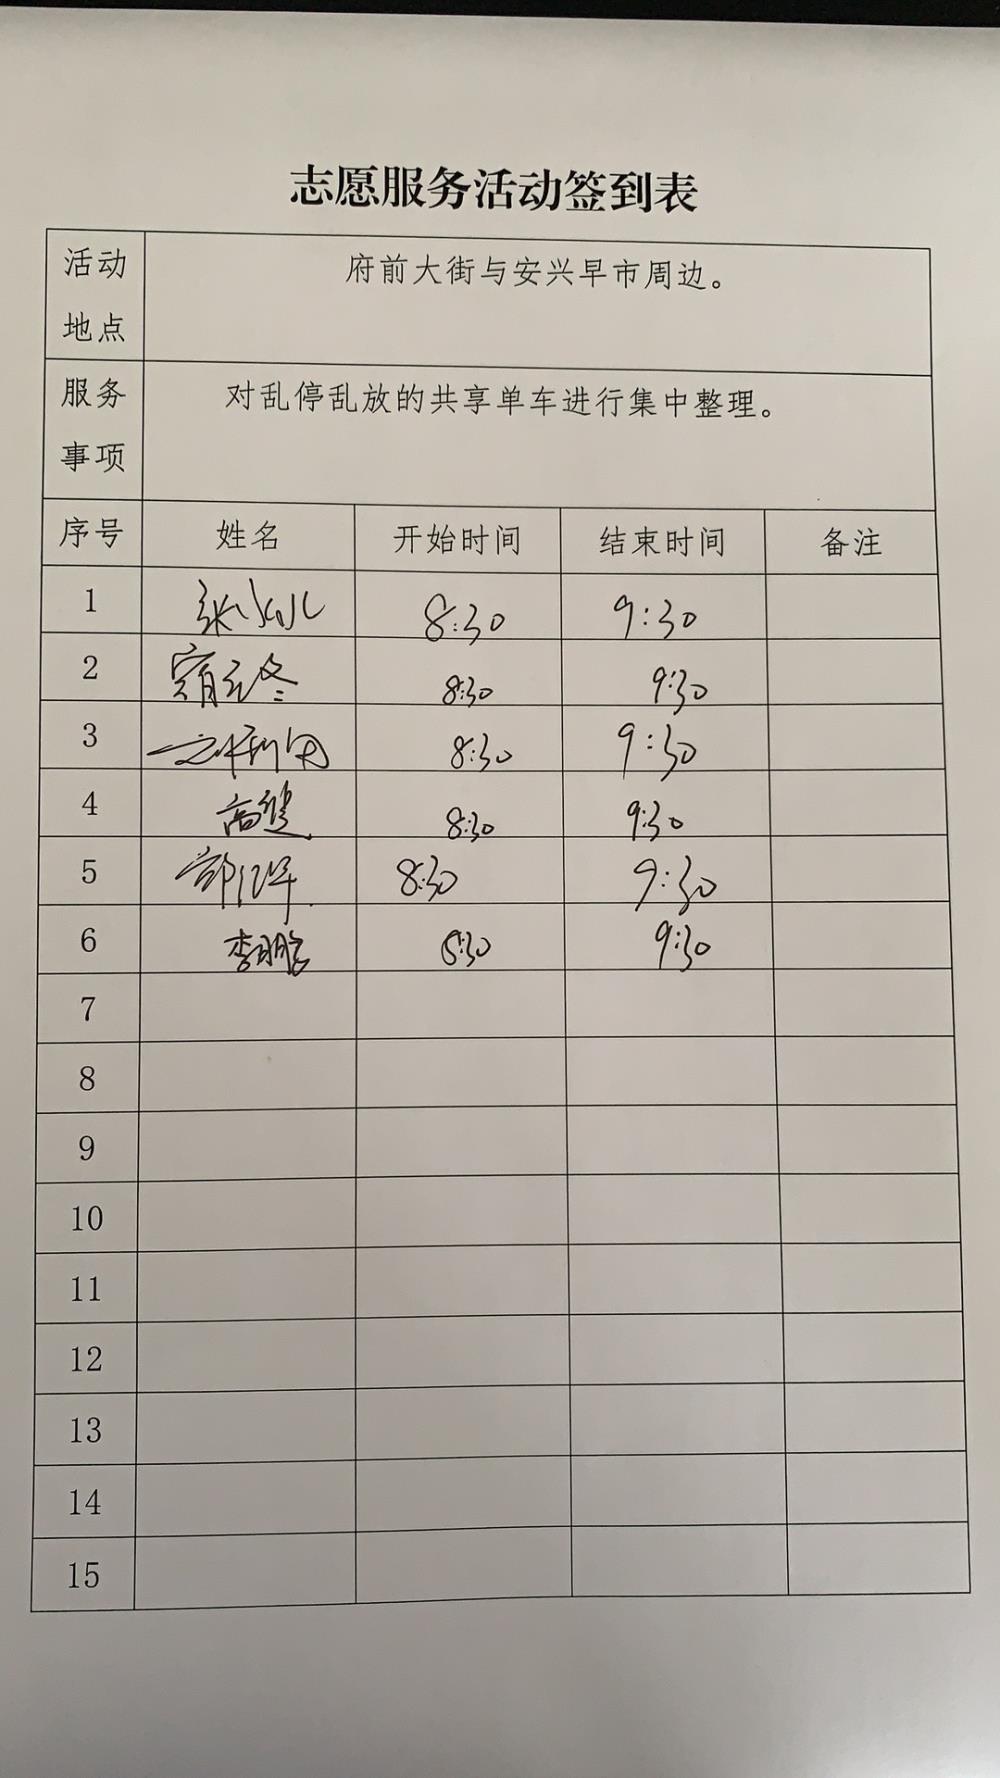 志愿服务活动签到表
活动地点 府前大街与安兴早市周边。
服务事项 对乱停乱放的共享单车进行集中整理。
序号 姓名 开始时间 结束时间 备注
1 8:30 9:30
2 8:30 9:30
3 8:30 9:30
4 高健 8:30 9:30
5 8:30 9:30
6 李鹏 8:30 9:30
7
8
9
10
11
12
13
14
15